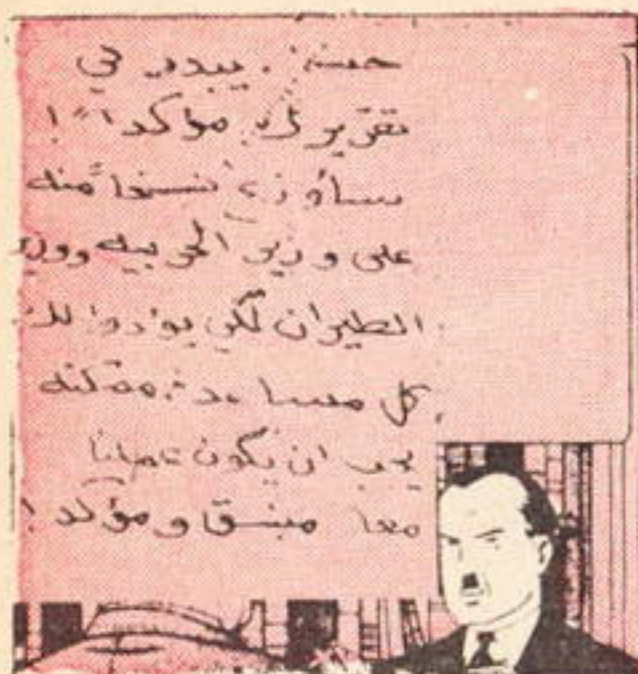 حسنا . يبدو لي
تقريرك مؤكدا !
سأوزع نسخا منه
على وزير الحربيه ووزير
الطيران لكي يؤدوا لك
كل مساعدة ممكنه
يجب ان يكون عملنا
معا منسق و مؤكد !